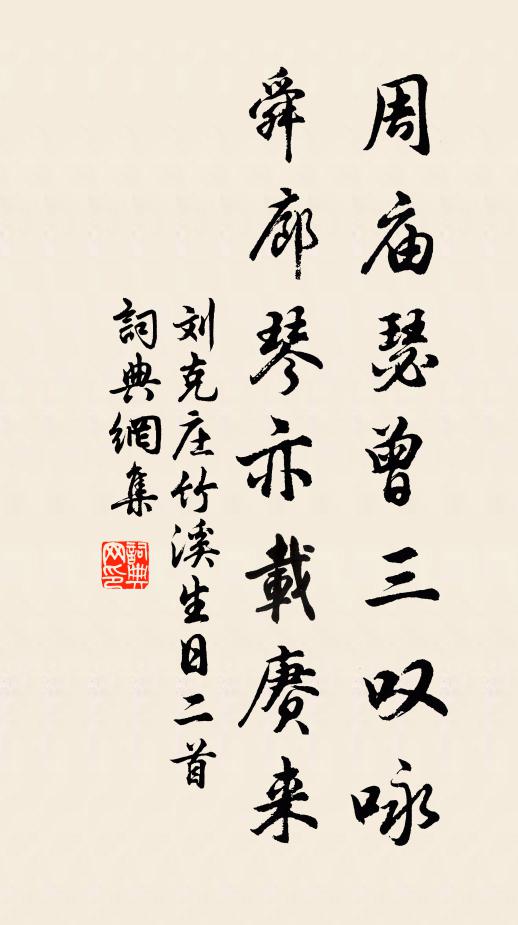 周庙瑟曾三叹咏
舜廊琴亦載赓来
刘克庄竹溪生日二首
詞典網集
詞典网印